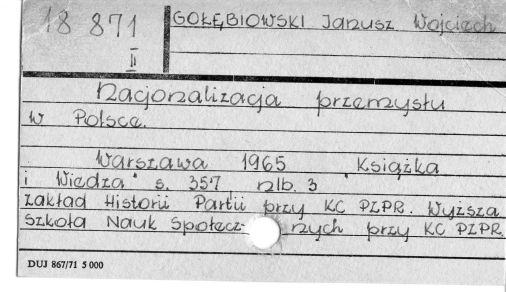 18 871
II
GOŁĘBIOWSKI Janusz Wojciech
Nacjonalizacja przemysłu
w Polsce.
Warszawa 1965 "Książka
i Wiedza" s. 357 nlb. 3
Zakład Historii Partii przy KC PZPR. Wyższa
Szkoła Nauk Społecz nych przy KC PZPR.
DUJ 867/71 5 000